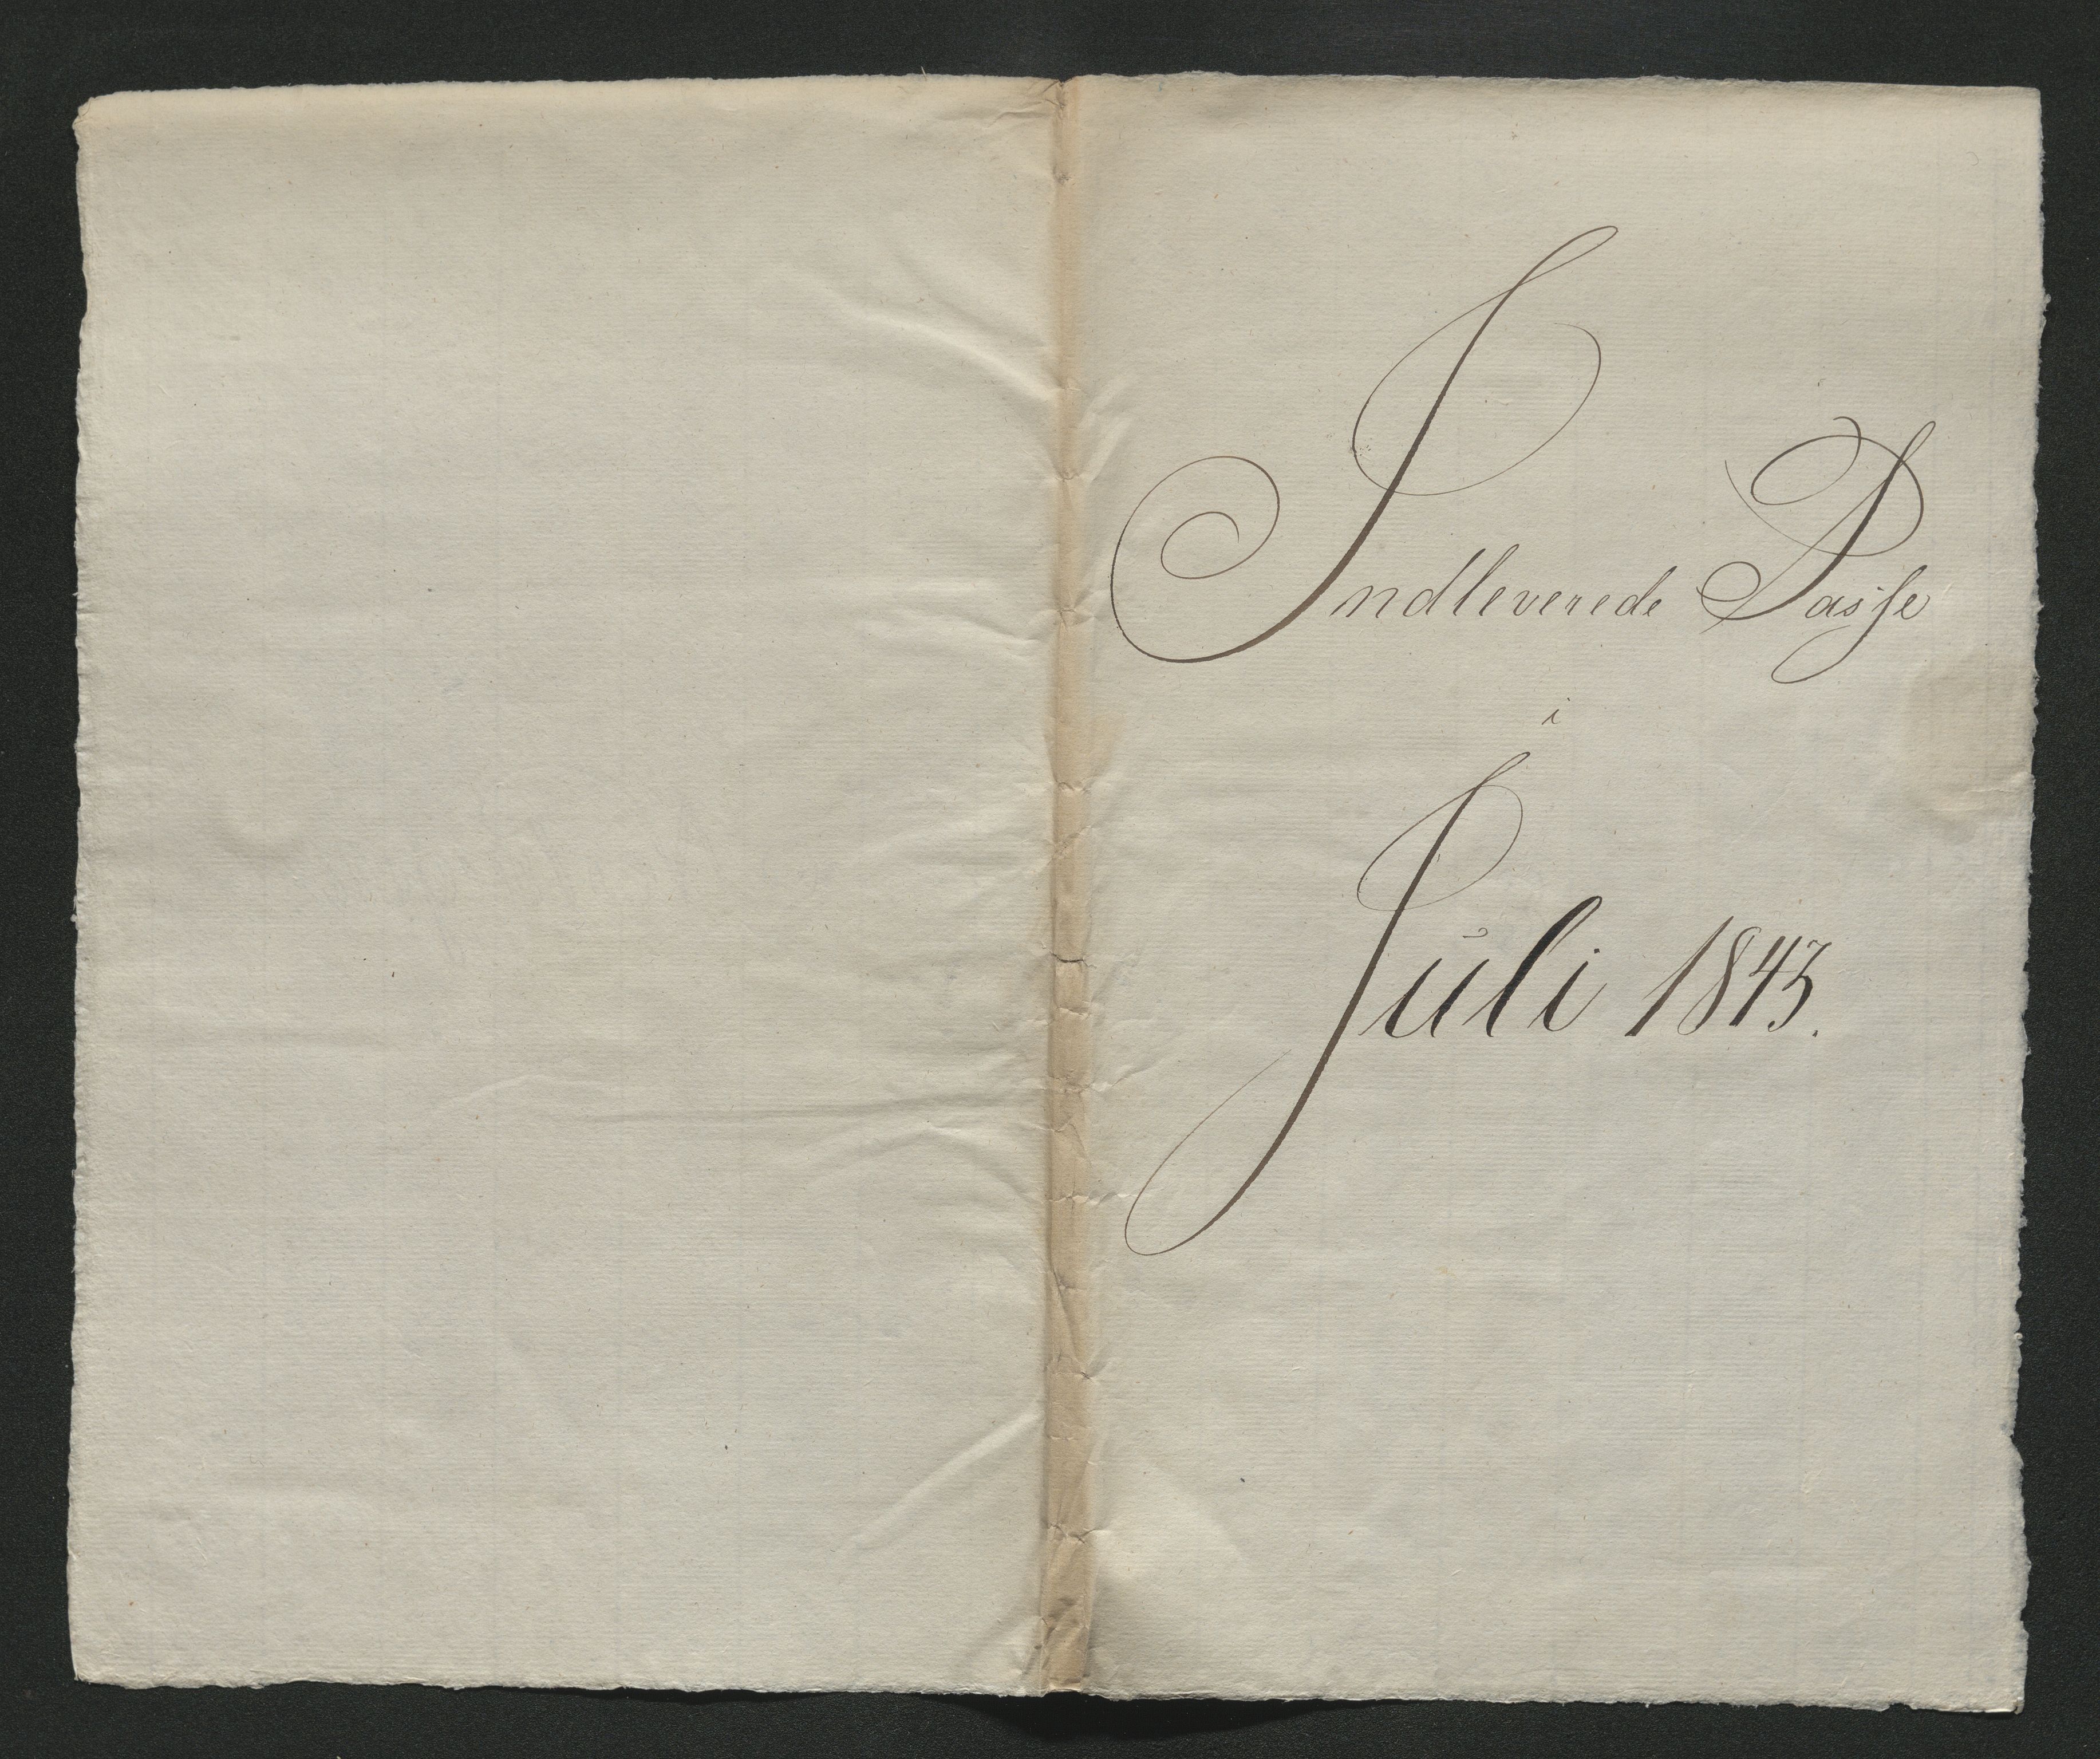 Indleverede Passe
i
Juli 1843.